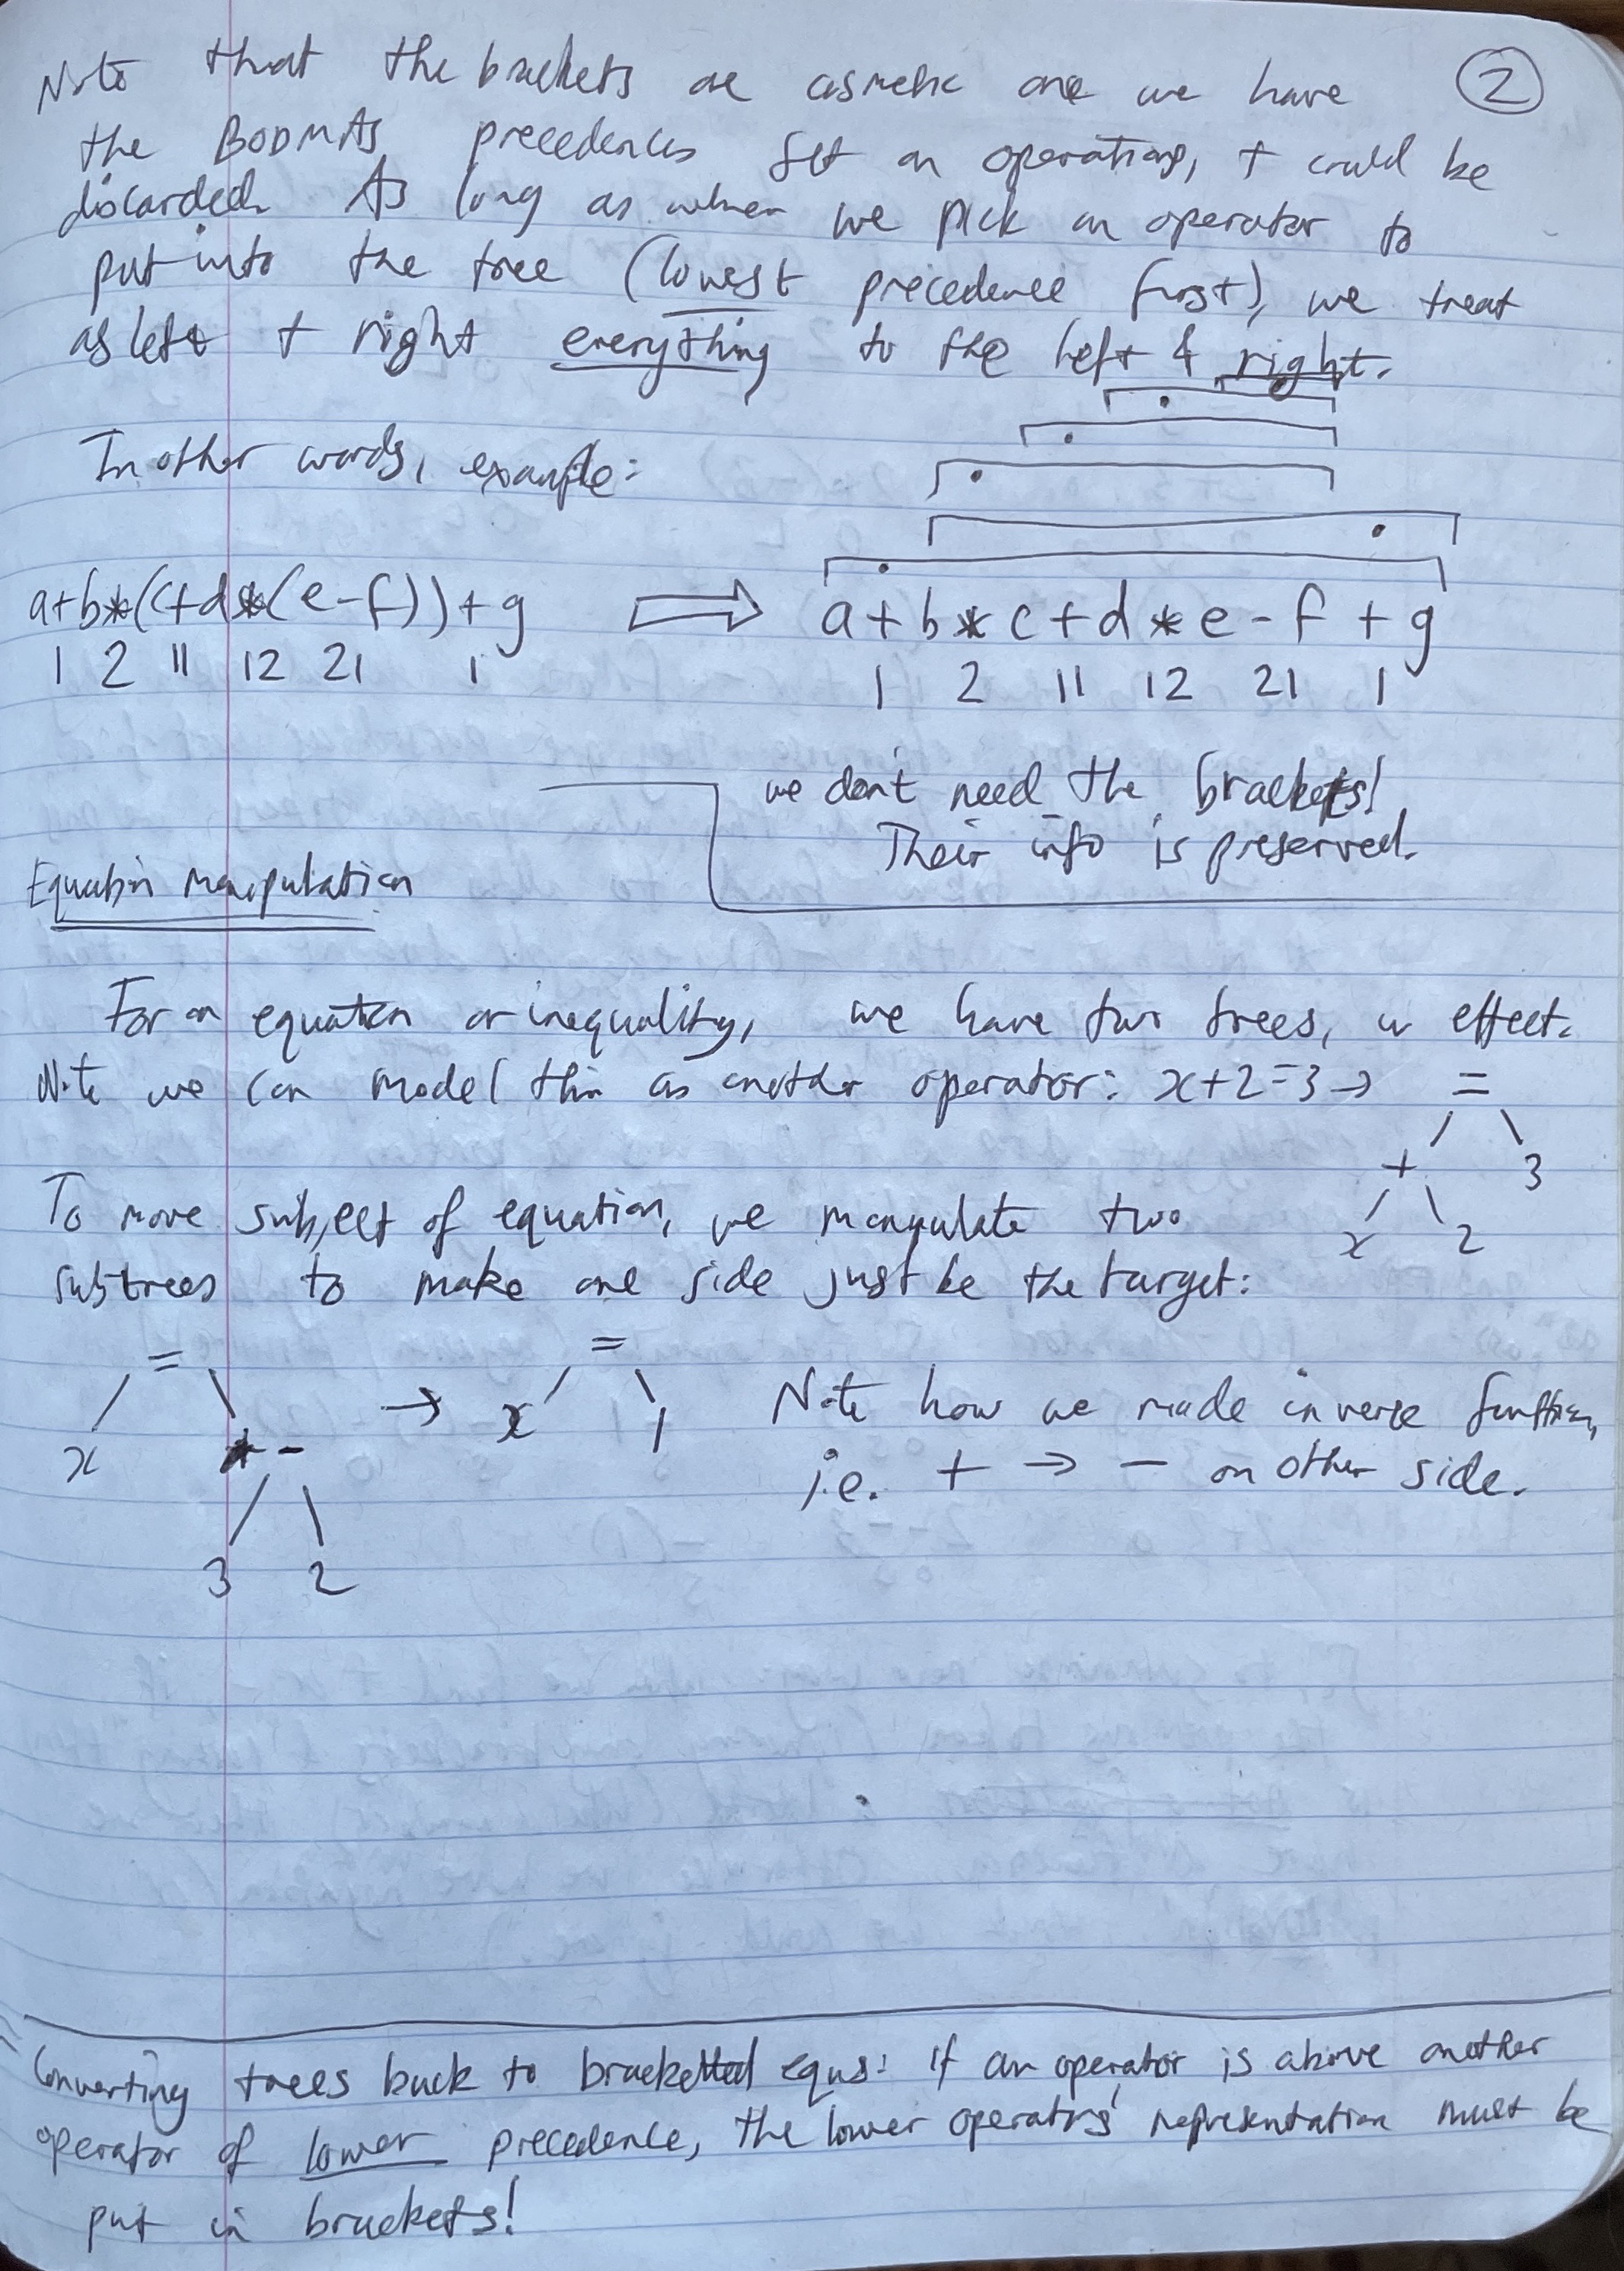 Note that the brackets are cosmetic once we have ②
the BODMAS precedences set on operations, + could be
discarded. As long as when we pick an operator to
put into the tree (lowest precedence first), we treat
as left + right everything to the left & right.
In other words, example:
a+b*(c+d*(e-f))+g ⇒ a+b*c+d*e-f+g
1 2 11 12 21 1 1 2 11 12 21 1
we don't need the brackets!
Their info is preserved.
Equation manipulation
For an equation or inequality, we have two trees, in effect.
Note we can model this as another operator: x+2=3 → =
+ 3
x 2
To move subject of equation, we manipulate two
subtrees to make one side just be the target:
= → =
x - x 1
3 2
Note how we made inverse function,
i.e. + → - on other side.
Converting trees back to bracketted eqns: if an operator is above another
operator of lower precedence, the lower operators' representation must be
put in brackets!